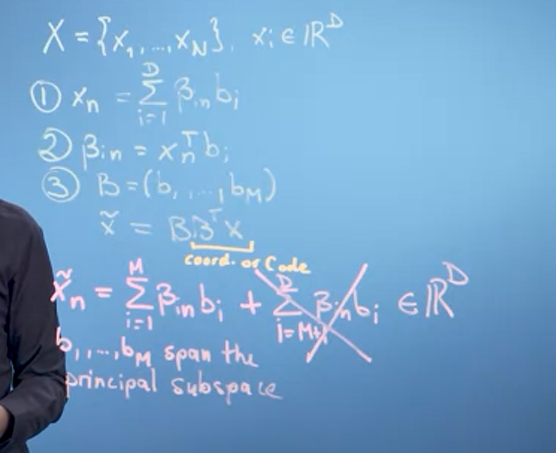 X = {x₁, ..., x_N}, xᵢ ∈ ℝᴰ
① xₙ = Σᵢ₌₁ᴰ βᵢₙ bᵢ
② βᵢₙ = xₙᵀ bᵢ
③ B = (b₁, ..., b_M)
x̃ = BBᵀx
coord. or Code
x̃ₙ = Σᵢ₌₁ᴹ βᵢₙ bᵢ + Σᵢ₌M₊₁ᴰ βᵢₙ bᵢ ∈ ℝᴰ
b₁, ..., b_M span the
principal subspace